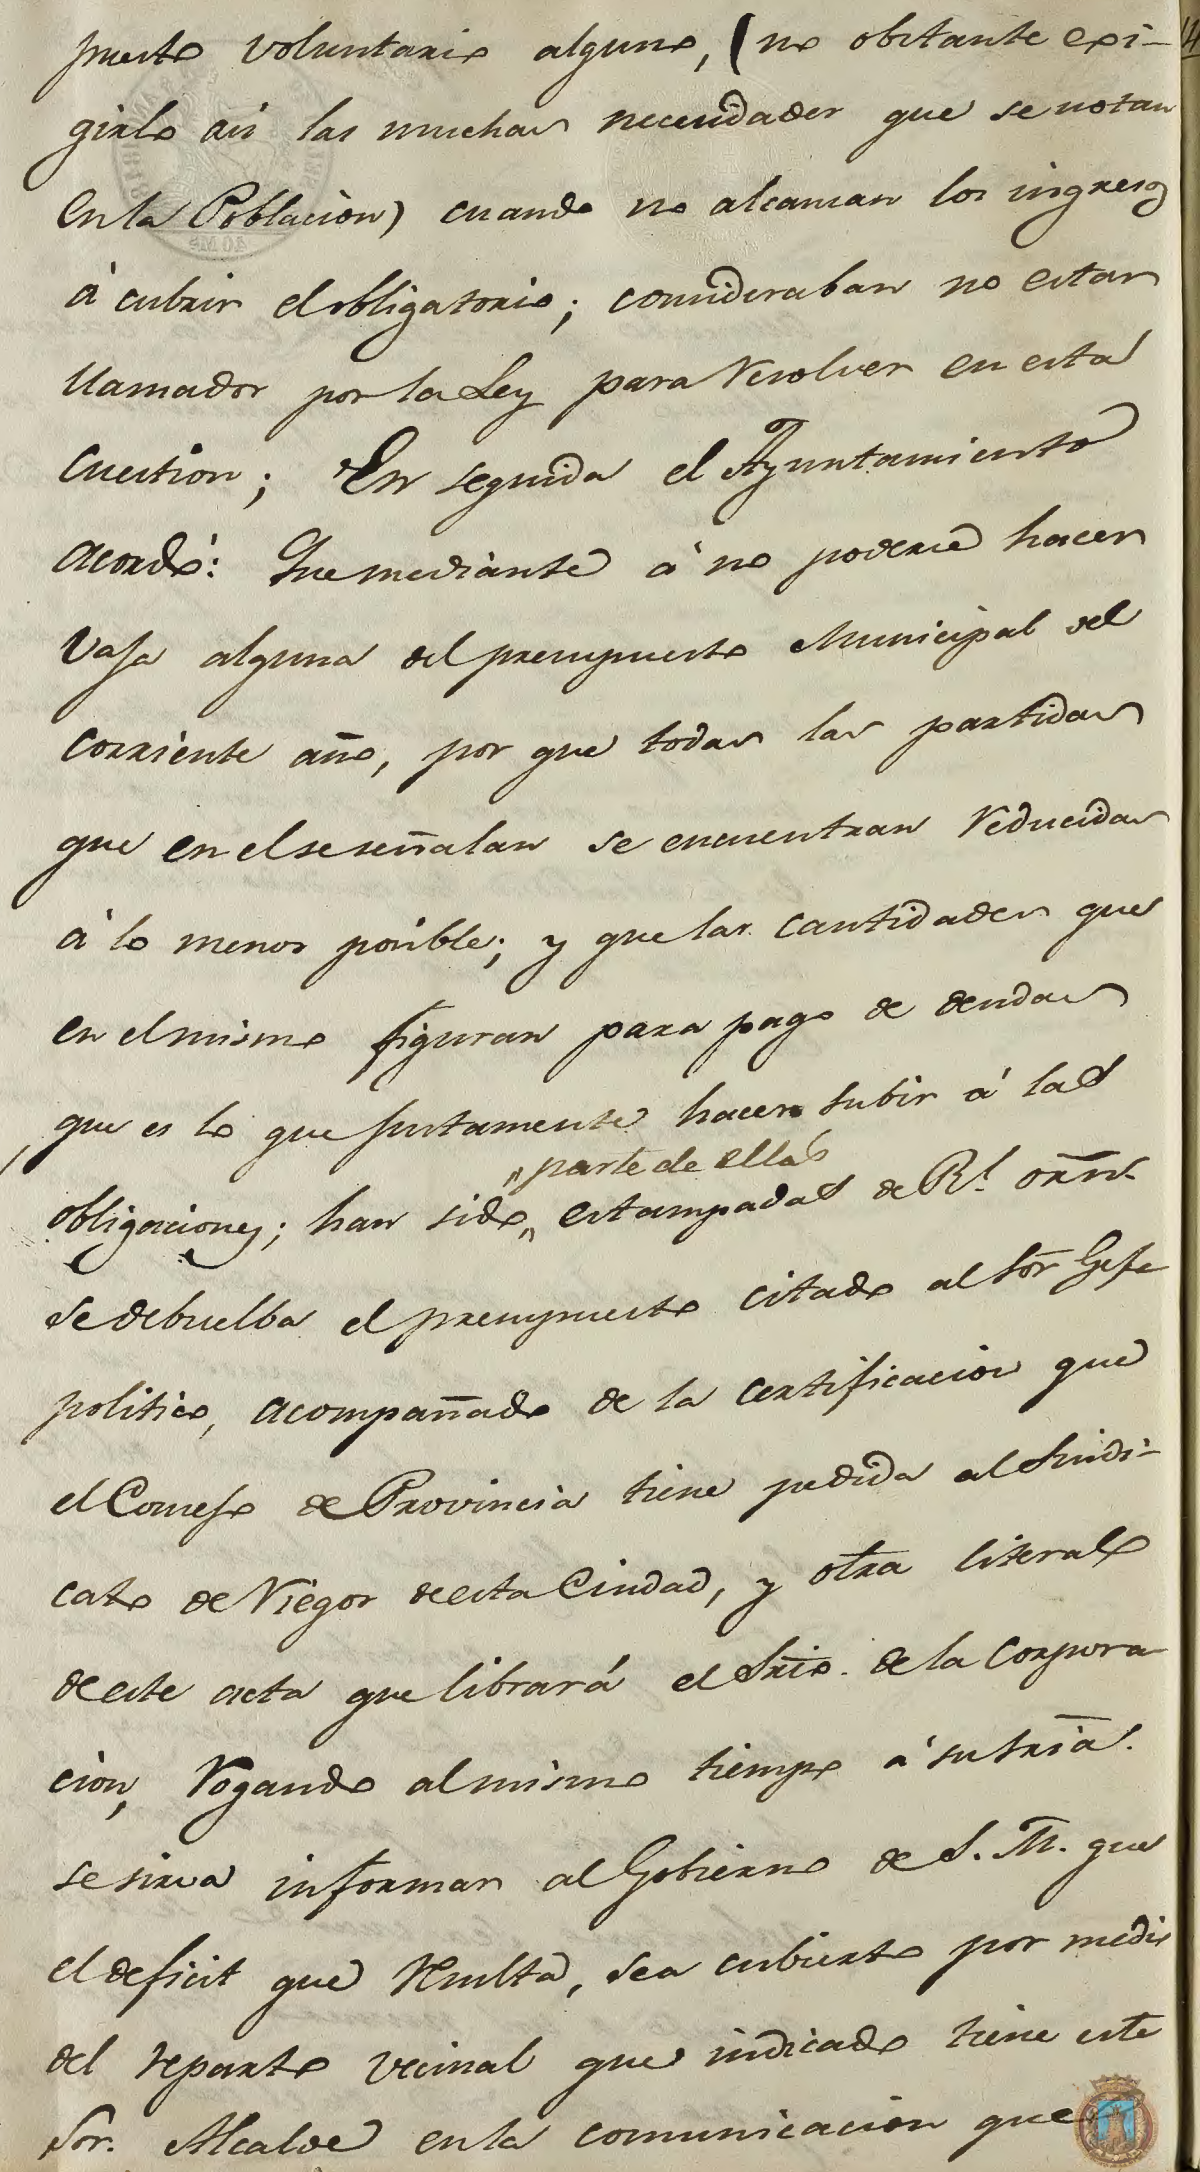 puesto voluntario alguno, (no obstante exi-
girlo asi las muchas necesidades que se notan
en la Poblacion) cuando no alcanzan los ingresos
á cubrir el obligatorio; consideraban no estar
llamados por la Ley para resolver en esta
cuestion; En seguida el Ayuntamiento
acordó: Que mediante á no poderse hacer
vaja alguna del presupuesto Municipal del
corriente año, por que todas las partidas
que en el se señalan se encuentran reducidas
á lo menos posible; y que las cantidades que
en el mismo figuran para pago de deudas
que es lo que justamente hacen subir á las
„parte de ellas
obligaciones; han sido„ estampadas de Rl. orñ.
se debuelba el presupuesto citado al Sõr Gefe
politico, acompañado de la certificacion que
el Consejo de Provincia tiene pedida al Sindi-
cato de Riegos de esta Ciudad, y otra literal
de este acta que librará el Srio. de la Corpora
cion, rogando al mismo tiempo á su Sria.
se sirva informar al Gobierno de S. M. que
el deficit que resulta, sea cubierto por medio
del reparto vecinal que indicado tiene este
Sor. Alcalde en la comunicacion que